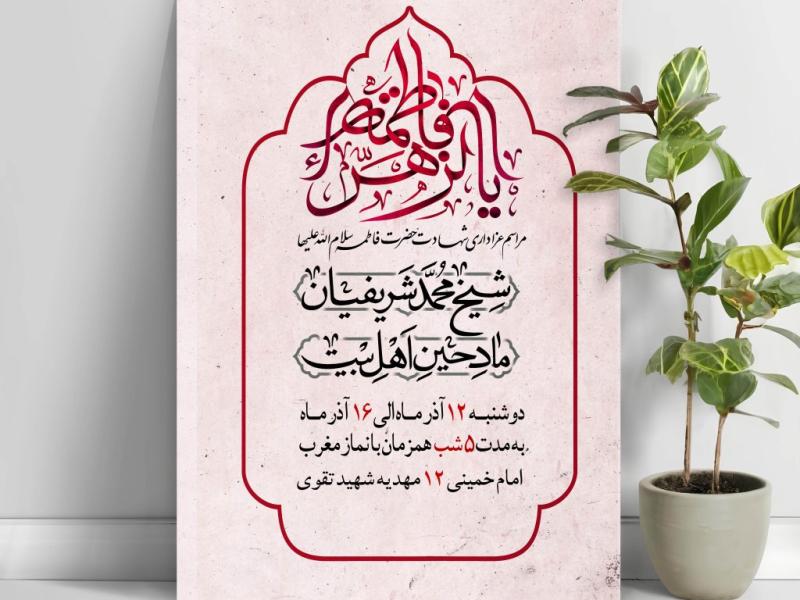 یا فاطمة الزهراء
مراسم عزاداری شهادت حضرت فاطمه سلام الله علیها
شیخ محمد شریفیان
مادحین اهل بیت
دوشنبه ۱۲ آذر ماه الی ۱۶ آذر ماه
به مدت ۵ شب همزمان با نماز مغرب
امام خمینی ۱۲ مهدیه شهید تقوی